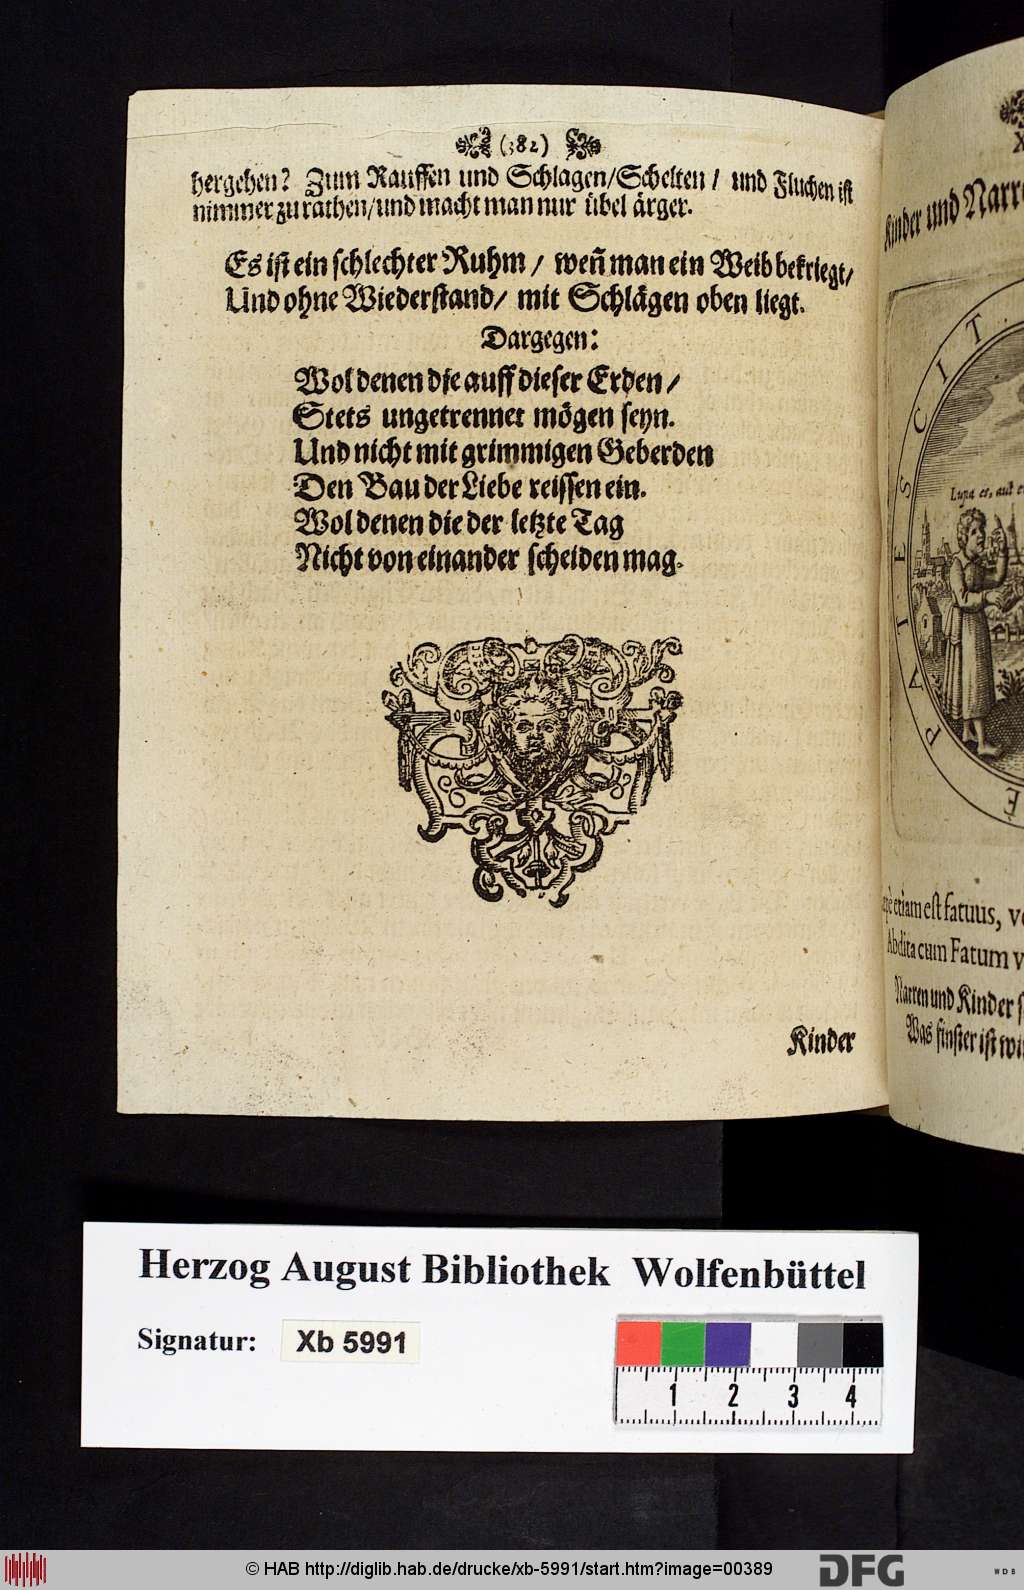 (382)
hergehen? Zum Rauffen und Schlagen/Schelten/ und Fluchen ist
nimmer zu rathen/und macht man nur übel ärger.
Es ist ein schlechter Ruhm/ weñ man ein Weib bekriegt/
Und ohne Wiederstand/ mit Schlägen oben liegt.
Dargegen:
Wol denen die auff dieser Erden/
Stets ungetrennet mögen seyn.
Und nicht mit grimmigen Geberden
Den Bau der Liebe reissen ein.
Wol denen die der letzte Tag
Nicht von einander scheiden mag.
Kinder
Kinder und
PATIESCIT.
Lupa es, aut
etiam est fatuus,
Abdita cum Fatum
Narren und Kinder
Was finster ist
Herzog August Bibliothek Wolfenbüttel
Signatur: Xb 5991
1 2 3 4
© HAB http://diglib.hab.de/drucke/xb-5991/start.htm?image=00389
DFG
WDB